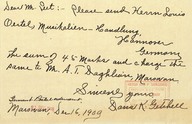 Dear Mr Peet:- Please send Herrn Louis
Oertel Musikalien-Handlung
Hannover
Germany
the sum of 48 Marks and charge the
same to Mr. A. T. Daghlian, Marsovan.
Sincerely yours
Dana K. Getchell
Marsovan Dec 16, 1909